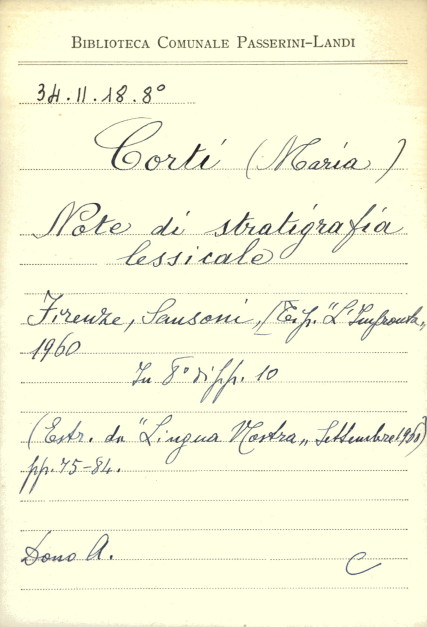 BIBLIOTECA COMUNALE PASSERINI-LANDI
34.II.18.8°
Corti (Maria)
Note di stratigrafia
lessicale
Firenze, Sansoni, (Tip. "L'Impronta„
1960
In 8° di pp. 10
(Estr. da "Lingua Nostra„ Settembre 1960)
pp. 75-84.
Dono A.
C